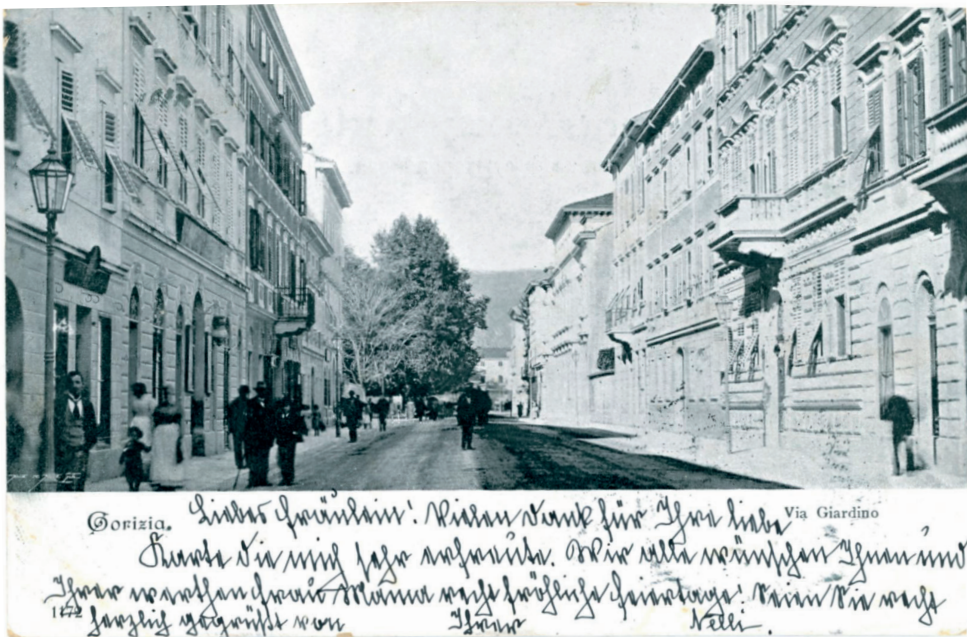 Gorizia. Liebes Fräulein! Vielen Dank für Ihre liebe
Via Giardino
Karte die mich sehr erfreute. Wir alle wünschen Ihnen und
Ihrer werthen Frau Mama recht fröhliche Feiertage! Seien Sie recht
herzlich gegrüßt von Ihrer Nelli.